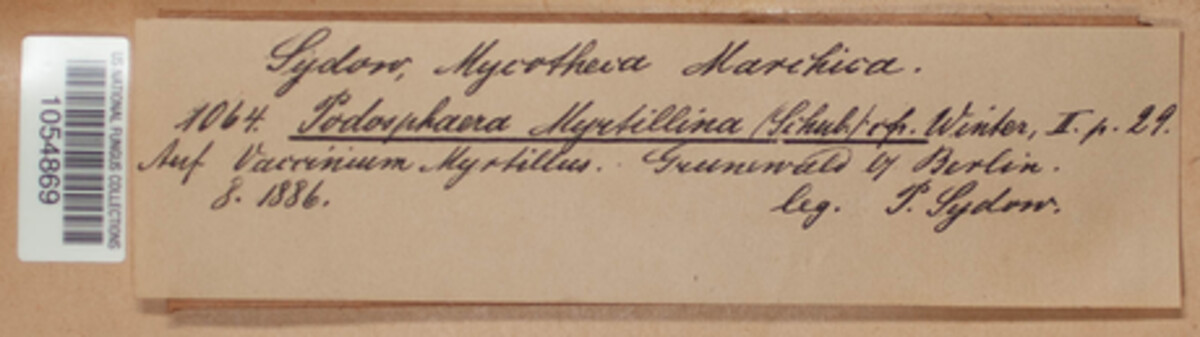 US NATIONAL FUNGUS COLLECTIONS
1054869
Sydow, Mycotheca Marchica.
1064. Podosphaera Myrtillina (Schub.) cfr. Winter, II. p. 29.
Auf Vaccinium Myrtillus. Grunewald b/ Berlin.
8. 1886.
leg. P. Sydow.